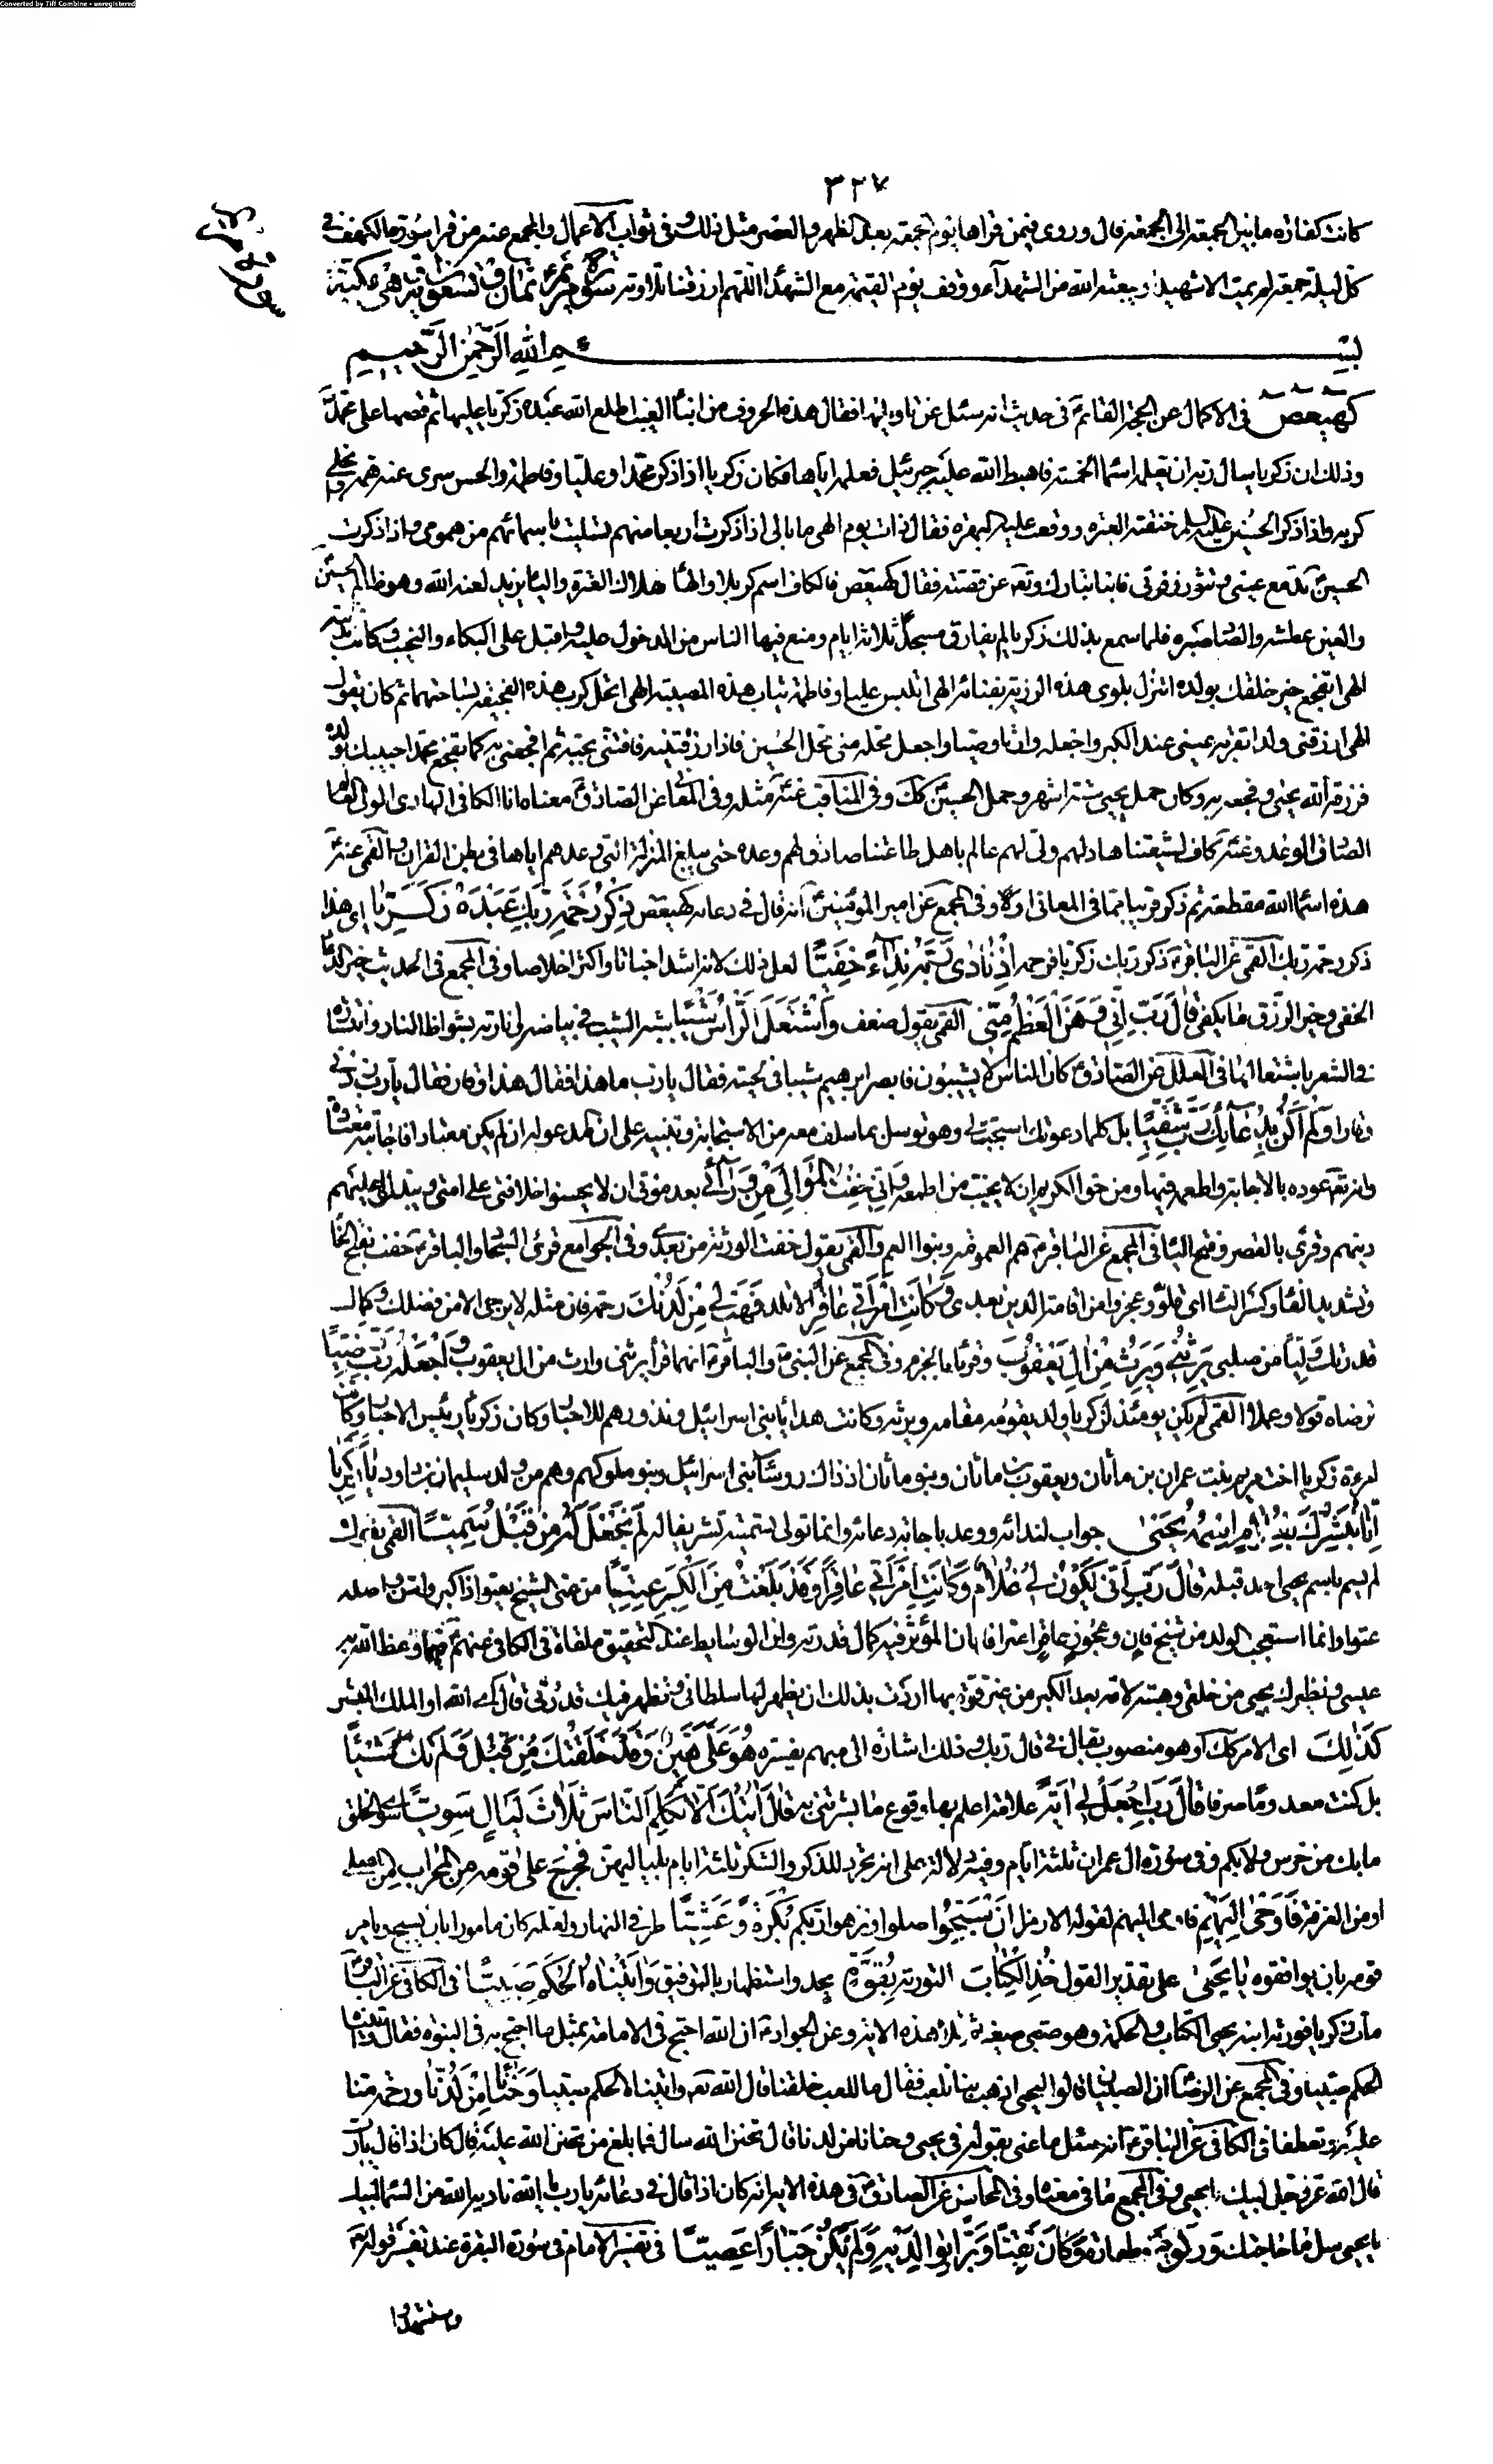 Converted by Tiff Combine - unregistered
٣٢٧
سورة مريم ١٩
كانت كفارة ما بين الجمعة الى الجمعة قال وروى فيمن قراها يوم الجمعة بعد الظهر والعصر مثل ذلك وفى ثواب الاعمال والمجمع عنه من قرا سورة الكهف فى
كل ليلة جمعة لم يمت الا شهيدا ويبعثه الله من الشهدآء ووقف يوم القيمة مع الشهدا اللهم ارزقنا تلاوته سورة مريم ثمان وتسعون اية هى مكية
بسم الله الرحمن الرحيم
كهيعص فى الاكمال عن الحجة القائم فى حديث انه سئل عن تاويلها فقال هذه الحروف من انباء الغيب اطلع الله عبده زكريا عليها ثم قصها على محمد
وذلك ان زكريا سال ربه ان يعلمه اسماء الخمسة فاهبط الله عليه جبرئيل فعلمه اياها فكان زكريا اذا ذكر محمدا وعليا وفاطمة والحسن سرى عنه همه وانجلى
كربه واذا ذكر الحسين عليه السلم خنقته العبرة ووقعت عليه البهرة فقال ذات يوم الهى ما بالى اذا ذكرت اربعا منهم تسليت باسمائهم من همومى واذا ذكرت
الحسين تدمع عينى وتثور زفرتى فانباه تبارك وتع عن قصته فقال كهيعص فالكاف اسم كربلا والهاء هلاك العترة والياء يزيد لعنه الله وهو ظالم الحسين
والعين عطشه والصاد صبره فلما سمع بذلك زكريا لم يفارق مسجده ثلاثة ايام ومنع فيها الناس من الدخول عليه واقبل على البكاء والنحيب وكانت ندبته
الهى اتفجع خير خلقك بولده اتنزل بلوى هذه الرزية بفنائه الهى اتلبس عليا وفاطمة ثياب هذه المصيبة الهى اتحل كرب هذه الفجيعة بساحتهما ثم كان يقول
الهى ارزقنى ولدا تقر به عينى عند الكبر واجعله وارثا وصيا واجعل محله منى محل الحسين فاذا رزقتنيه فافتنى بحبه ثم افجعنى به كما تفجع محمدا حبيبك بولده
فرزقه الله يحيى وفجعه به وكان حمل يحيى ستة اشهر وحمل الحسين كك وفى المناقب عنه مثله وفى المعانى عن الصادق معناه انا الكافى الهادى الولى العالم
الصادق الوعد وعنه كاف لشيعتنا هاد لهم ولى لهم عالم باهل طاعتنا صادق لهم وعده حتى يبلغ المنزلة التى وعدهم اياها فى بطن القران والقمى عنه
هذه اسماء الله مقطعة ثم ذكر قريبا مما فى المعانى اولا وفى المجمع عن امير المؤمنين انه قال فى دعائه كهيعص ذكر رحمة ربك عبده زكريا اى هذا
ذكر رحمة ربك القمى عن الباقر ذكر ربك زكريا فرحمه اذ نادى ربه نداء خفيا لعل ذلك لانه اشد اخباتا واكثر اخلاصا وفى المجمع فى الحديث خير الدعاء
الخفى وخير الرزق ما يكفى قال رب انى وهن العظم منى القمى يقول ضعف واشتعل الرأس شيبا شبه الشيب فى بياضه وانارته بشواظ النار وانتشاره
فى الشعر باشتعالها فى العلل عن الصادق كان الناس لا يشيبون فابصر ابرهيم شيبا فى لحيته فقال يا رب ما هذا فقال هذا وقار فقال يا رب زدنى
وقارا ولم اكن بدعائك رب شقيا بل كلما دعوتك استجبت لى وهو توسل بما سلف معه من الاستجابة وتنبيه على ان المدعو له ان لم يكن معتادا فاجابته معتادة
وانه تع عوده بالاجابة واطعمه فيها ومن حق الكريم ان لا يخيب من اطمعه وانى خفت الموالى من ورائى بعد موتى ان لا يحسنوا خلافتى على امتى ويبدلوا عليهم
دينهم وقرئ بالقصر وفتح الياء فى المجمع عن الباقر هم العمومة وبنوا العم والقمى يقول خفت الورثة من بعدى وفى الجوامع قرئ السجاد والباقر خفت بفتح الخاء
وتشديد الفاء وكسر التاء اى قلوا وعجزوا من اقامة الدين بعدى وكانت امرأتى عاقرا لا تلد فهب لى من لدنك رحمة فان مثله لا يرجى الا من فضلك وكمال
قدرتك وليا من صلبى يرثنى ويرث من ال يعقوب وقرئا بالجزم وفى المجمع عن النبى والباقر انهما قرأ يرثنى وارث من ال يعقوب واجعله رب رضيا
ترضاه قولا وعملا القمى لم يكن يومئذ لزكريا ولد يقوم مقامه ويرثه وكانت هدايا بنى اسرائيل ونذورهم للاحبار وكان زكريا رئيس الاحبار وكانت
امرءة زكريا اخت مريم بنت عمران بن ماثان ويعقوب بن ماثان وبنو ماثان اذ ذاك روسآء بنى اسرائيل وبنو ملوكهم وهم من ولد سليمان بن داود يا زكريا
انا نبشرك بغلام اسمه يحيى جواب لندائه ووعد باجابة دعائه وانما تولى تسميته تشريفا له لم نجعل له من قبل سميا القمى يقول
لم يسم باسم يحيى احد قبله قال رب انى يكون لى غلام وكانت امرأتى عاقرا وقد بلغت من الكبر عتيا من عتى الشيخ يعتو اذا كبر واسن واصله
عتوا وانما استعجب الولد من شيخ فان وعجوز عاقر اعترافا بان المؤثر فيه كمال قدرته وان الوسايط عند التحقيق ملغاة فى الكافى عنهم فيما وعظ الله به
عيسى ونظيرك يحيى من خلقى وهبته لامه بعد الكبر من غير قوة بها اردت بذلك ان يظهر لها سلطانى وتظهر فيك قدرتى قال اى الله او الملك المبشر
كذلك اى الامر كك او هو منصوب بقال فى قال ربك وذلك اشارة الى مبهم يفسره هو على هين وقد خلقتك من قبل ولم تك شيئا
بل كنت معدوما صرفا قال رب اجعل لى اية علامة اعلم بها وقوع ما بشرتنى به قال ايتك الا تكلم الناس ثلاث ليال سويا سوى الخلق
ما بك من خرس ولا بكم وفى سورة ال عمران ثلثة ايام وفيه دلالة على انه تجرد للذكر والشكر ثلثة ايام بلياليهن فخرج على قومه من المحراب من المصلى
او من الغرفة فاوحى اليهم فاومى اليهم لقوله الا رمزا ان سبحوا صلوا او نزهوا ربكم بكرة وعشيا طرفى النهار ولعله كان مامورا بان يسبح ويامر
قومه بان يوافقوه يا يحيى على تقدير القول خذ الكتاب التورية بقوة بجد واستظهار بالتوفيق واتيناه الحكم صبيا فى الكافى عن الباقر
مات زكريا فورثه ابنه يحيى الكتاب والحكمة وهو صبى صغير ثم تلا هذه الاية وعن الجواد ان الله احتج فى الامامة بمثل ما احتج به فى النبوة فقال واتيناه
الحكم صبيا وفى المجمع عن الرضا ان الصبيان قالوا ليحيى اذهب بنا نلعب فقال ما للعب خلقنا قال الله تع واتيناه الحكم صبيا وحنانا من لدنا ورحمة منا
عليه وتعطفا فى الكافى عن الباقر انه سئل ما عنى بقوله فى يحيى وحنانا من لدنا قال تحنن الله سال فما بلغ من تحنن الله عليه قال كان اذا قال يا رب
قال الله عز وجل لبيك يا يحيى وفى المجمع ما فى معناه وفى المحاسن عن الصادق فى هذه الاية انه كان اذا قال فى دعائه يا رب يا الله ناديه الله من السماء لبيك
يا يحيى سل ما حاجتك وزكوة وطهارة وكان تقيا وبرا بوالديه ولم يكن جبارا عصيا فى تفسير الامام فى سورة البقرة عند تفسير قوله تع
واستشهدوا